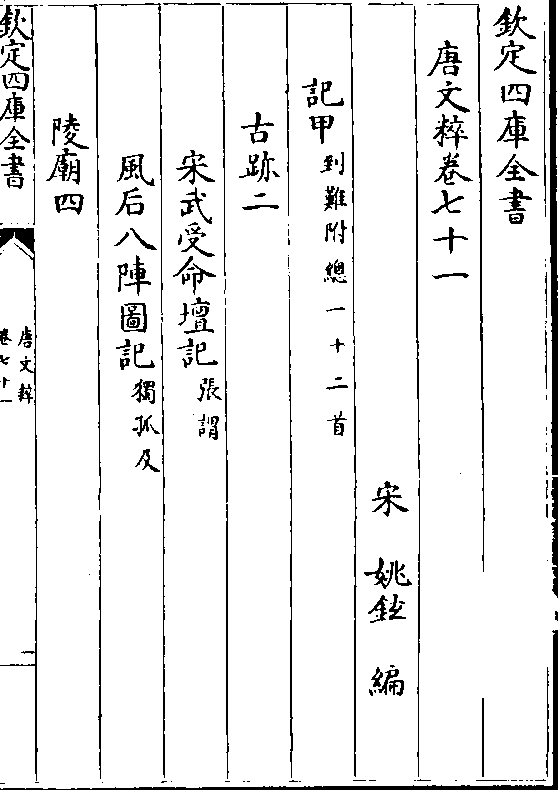 欽定四庫全書
唐文粹卷七十一
宋 姚鉉 編
記甲 到難附總一十二首
古跡二
宋武受命壇記 張謂
風后八陣圖記 獨孤及
陵廟四
欽定四庫全書
唐文粹
卷七十一
一